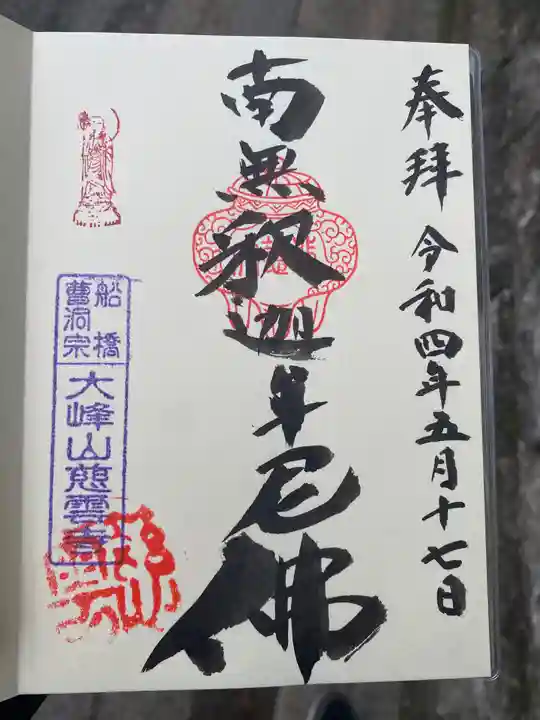 奉拝 令和四年五月十七日
南無釈迦牟尼佛
船橋
曹洞宗
大峰山慈雲寺